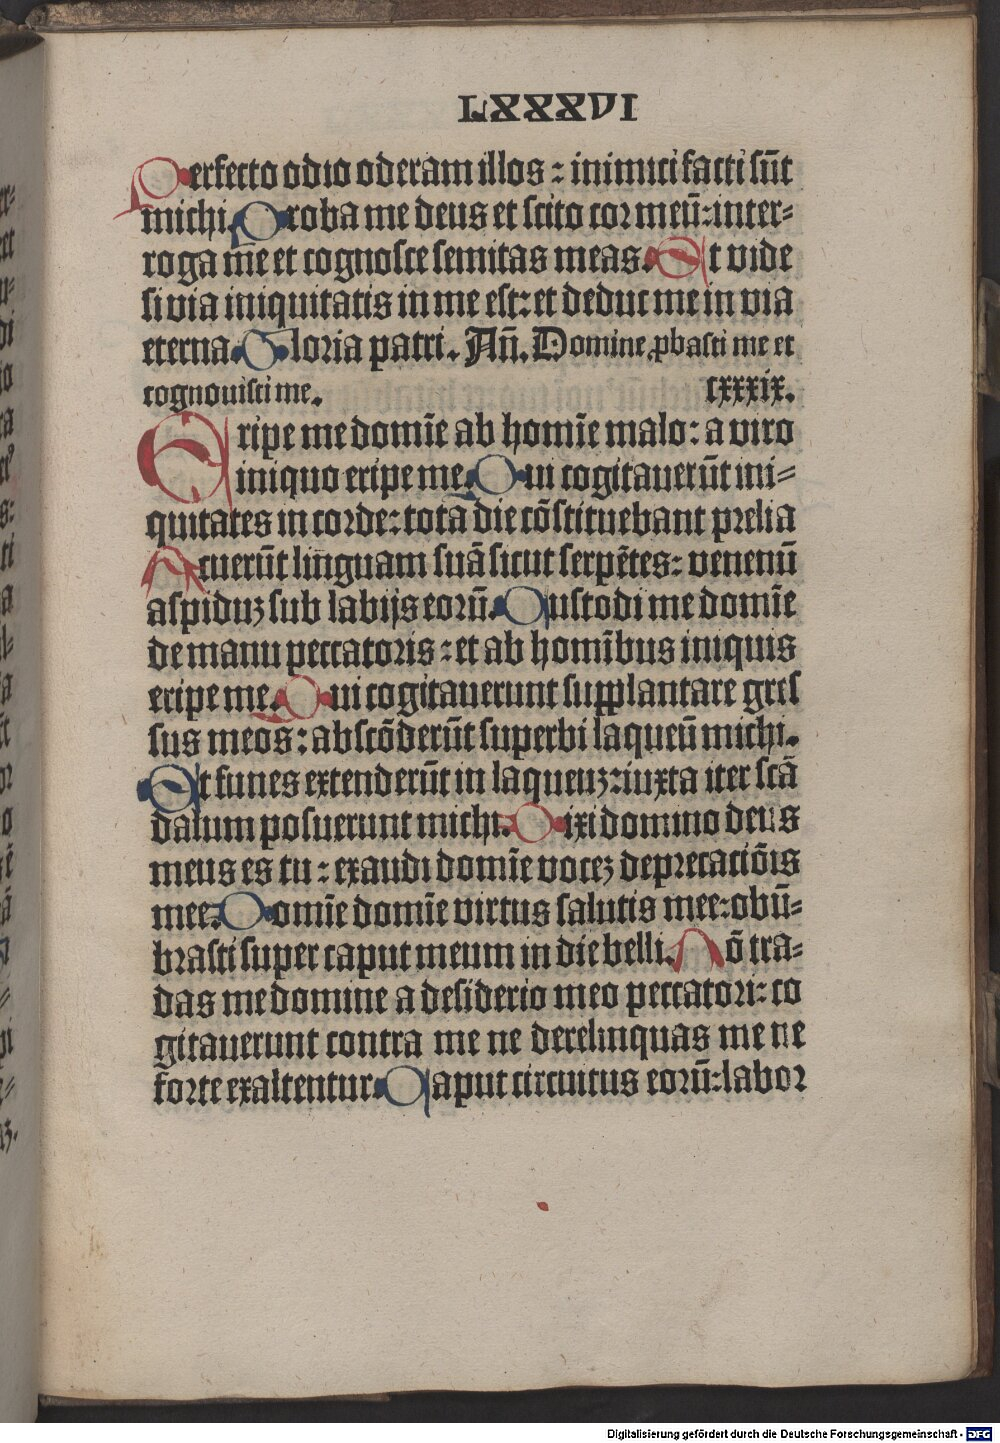 LXXXVI
Perfecto odio oderam illos : inimici facti sūt
michi. Proba me deus et scito cor meū: inter=
roga me et cognosce semitas meas. Et vide
si via iniquitatis in me est: et deduc me in via
eterna. Gloria patri. An̄. Domine ꝓbasti me et
cognouisti me. cxxxix.
Eripe me domīe ab homīe malo: a viro
iniquo eripe me. Qui cogitauerūt ini=
quitates in corde: tota die cōstituebant prelia
Acuerūt linguam suā sicut serpētes: venenū
aspiduꝫ sub labijs eorū. Custodi me domīe
de manu peccatoris : et ab homībus iniquis
eripe me. Qui cogitauerunt supplantare gres
sus meos : abscōderūt superbi laqueū michi.
Et funes extenderūt in laqueuꝫ: iuxta iter scā
dalum posuerunt michi. Dixi domino deus
meus es tu : exaudi domīe voceꝫ deprecatiōis
mee. Domīe domīe virtus salutis mee: obū=
brasti super caput meum in die belli. Nō tra=
das me domine a desiderio meo peccatori: co
gitauerunt contra me ne derelinquas me ne
forte exaltentur. Caput circuitus eorū: labor
Digitalisierung gefördert durch die Deutsche Forschungsgemeinschaft - DFG